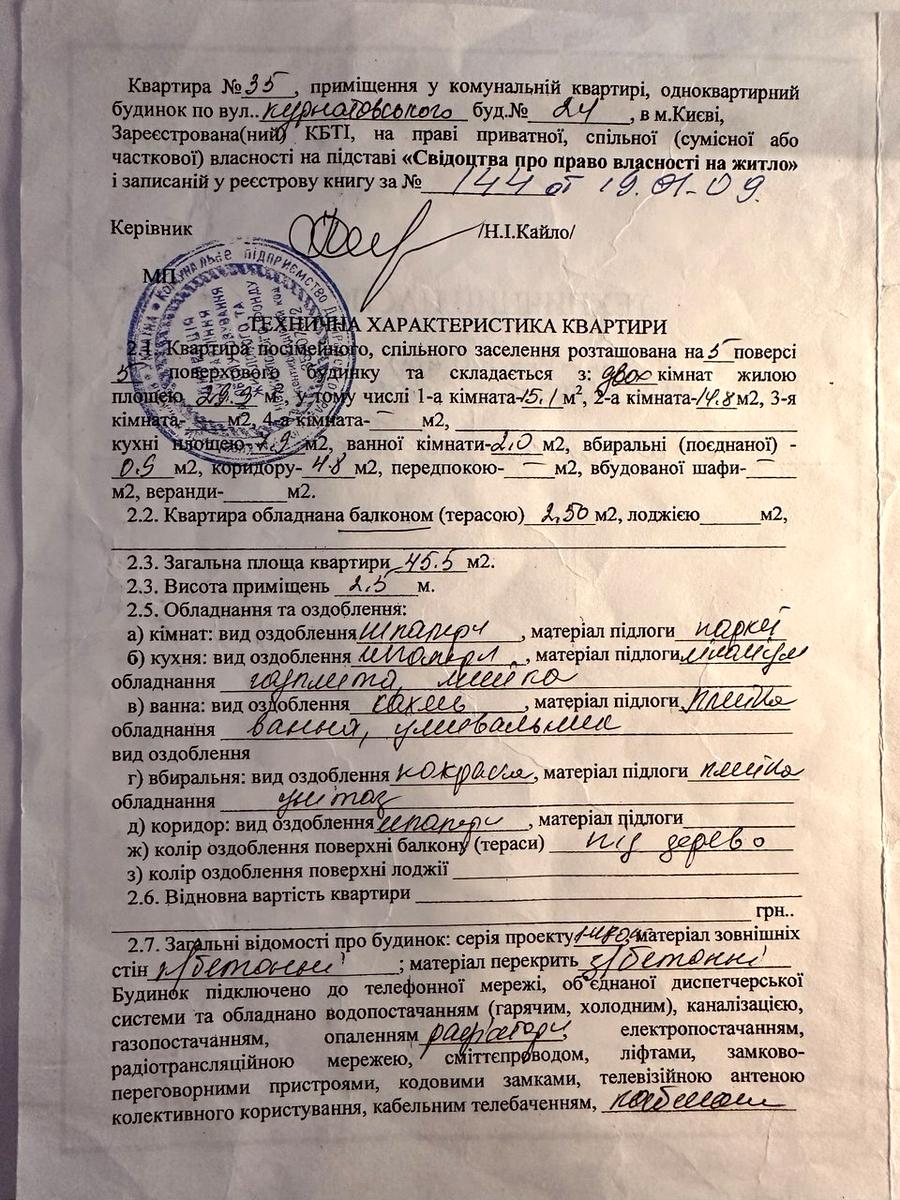 Квартира №35, приміщення у комунальній квартирі, одноквартирний
будинок по вул..Курнатовського буд.№ 24, в м.Києві,
Зареєстрована(ний) КБТІ, на праві приватної, спільної (сумісної або
часткової) власності на підставі «Свідоцтва про право власності на житло»
і записаній у реєстрову книгу за № 144 от 19.01-09.
Керівник /Н.І.Кайло/
МП
ТЕХНИЧНА ХАРАКТЕРИСТИКА КВАРТИРИ
2.1. Квартира посімейного, спільного заселення розташована на 5 поверсі
5 поверхового будинку та складається з: двох кімнат жилою
площею 29.9 м², у тому числі 1-а кімната-15.1 м², 2-а кімната-14.8м2, 3-я
кімната- м2, 4-а кімната- м2,
кухні площею- м2, ванної кімнати-2.0 м2, вбиральні (поєднаної) -
0.9 м2, коридору- 4.8 м2, передпокою- — м2, вбудованої шафи- —
м2, веранди- м2.
2.2. Квартира обладнана балконом (терасою) 2,50 м2, лоджією м2,
2.3. Загальна площа квартири 45.5 м2.
2.3. Висота приміщень 2.5 м.
2.5. Обладнання та оздоблення:
а) кімнат: вид оздоблення шпалери, матеріал підлоги паркет
б) кухня: вид оздоблення шпалери, матеріал підлоги
обладнання газплита, мийка
в) ванна: вид оздоблення кахель, матеріал підлоги плитка
обладнання ванная, умивальник
вид оздоблення
г) вбиральня: вид оздоблення покраска, матеріал підлоги плитка
обладнання унітаз
д) коридор: вид оздоблення шпалери, матеріал підлоги
ж) колір оздоблення поверхні балкону (тераси) під дерево
з) колір оздоблення поверхні лоджії
2.6. Відновна вартість квартири
грн..
2.7. Загальні відомості про будинок: серія проекту матеріал зовнішніх
стін з/бетонні ; матеріал перекрить з/бетонні
Будинок підключено до телефонної мережі, об'єднаної диспетчерської
системи та обладнано водопостачанням (гарячим, холодним), каналізацією,
газопостачанням, опаленням радіатори, електропостачанням,
радіотрансляційною мережею, сміттєпроводом, ліфтами, замково-
переговорними пристроями, кодовими замками, телевізійною антеною
колективного користування, кабельним телебаченням,